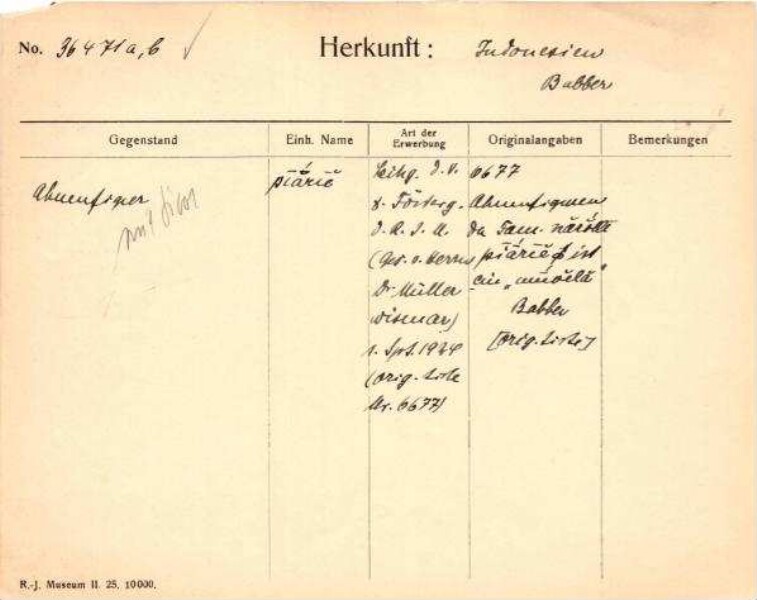 No. 36471a,b
Herkunft: Indonesien
Babber
Gegenstand
Einh. Name
Art der Erwerbung
Originalangaben
Bemerkungen
Ahnenfigur
mit
piariĕ
Leihg. d. V.
z. Förderg.
d. R. J. M.
(Ges. v. Herrn
Dr Müller
Wismar)
1. Spt. 1934
(Orig. Liste
Nr. 6677)
6677
Ahnenfiguren
da Fam.
piariĕ ist
ein
Babber
[Orig. Liste]
R.-J. Museum II. 25. 10000.